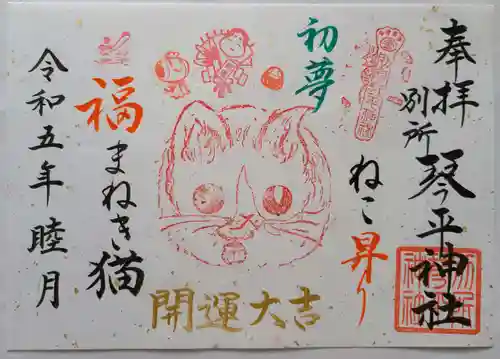 奉拝
別所
琴平神社
初夢
ねこ昇り
開運大吉
福まねき猫
令和五年睦月